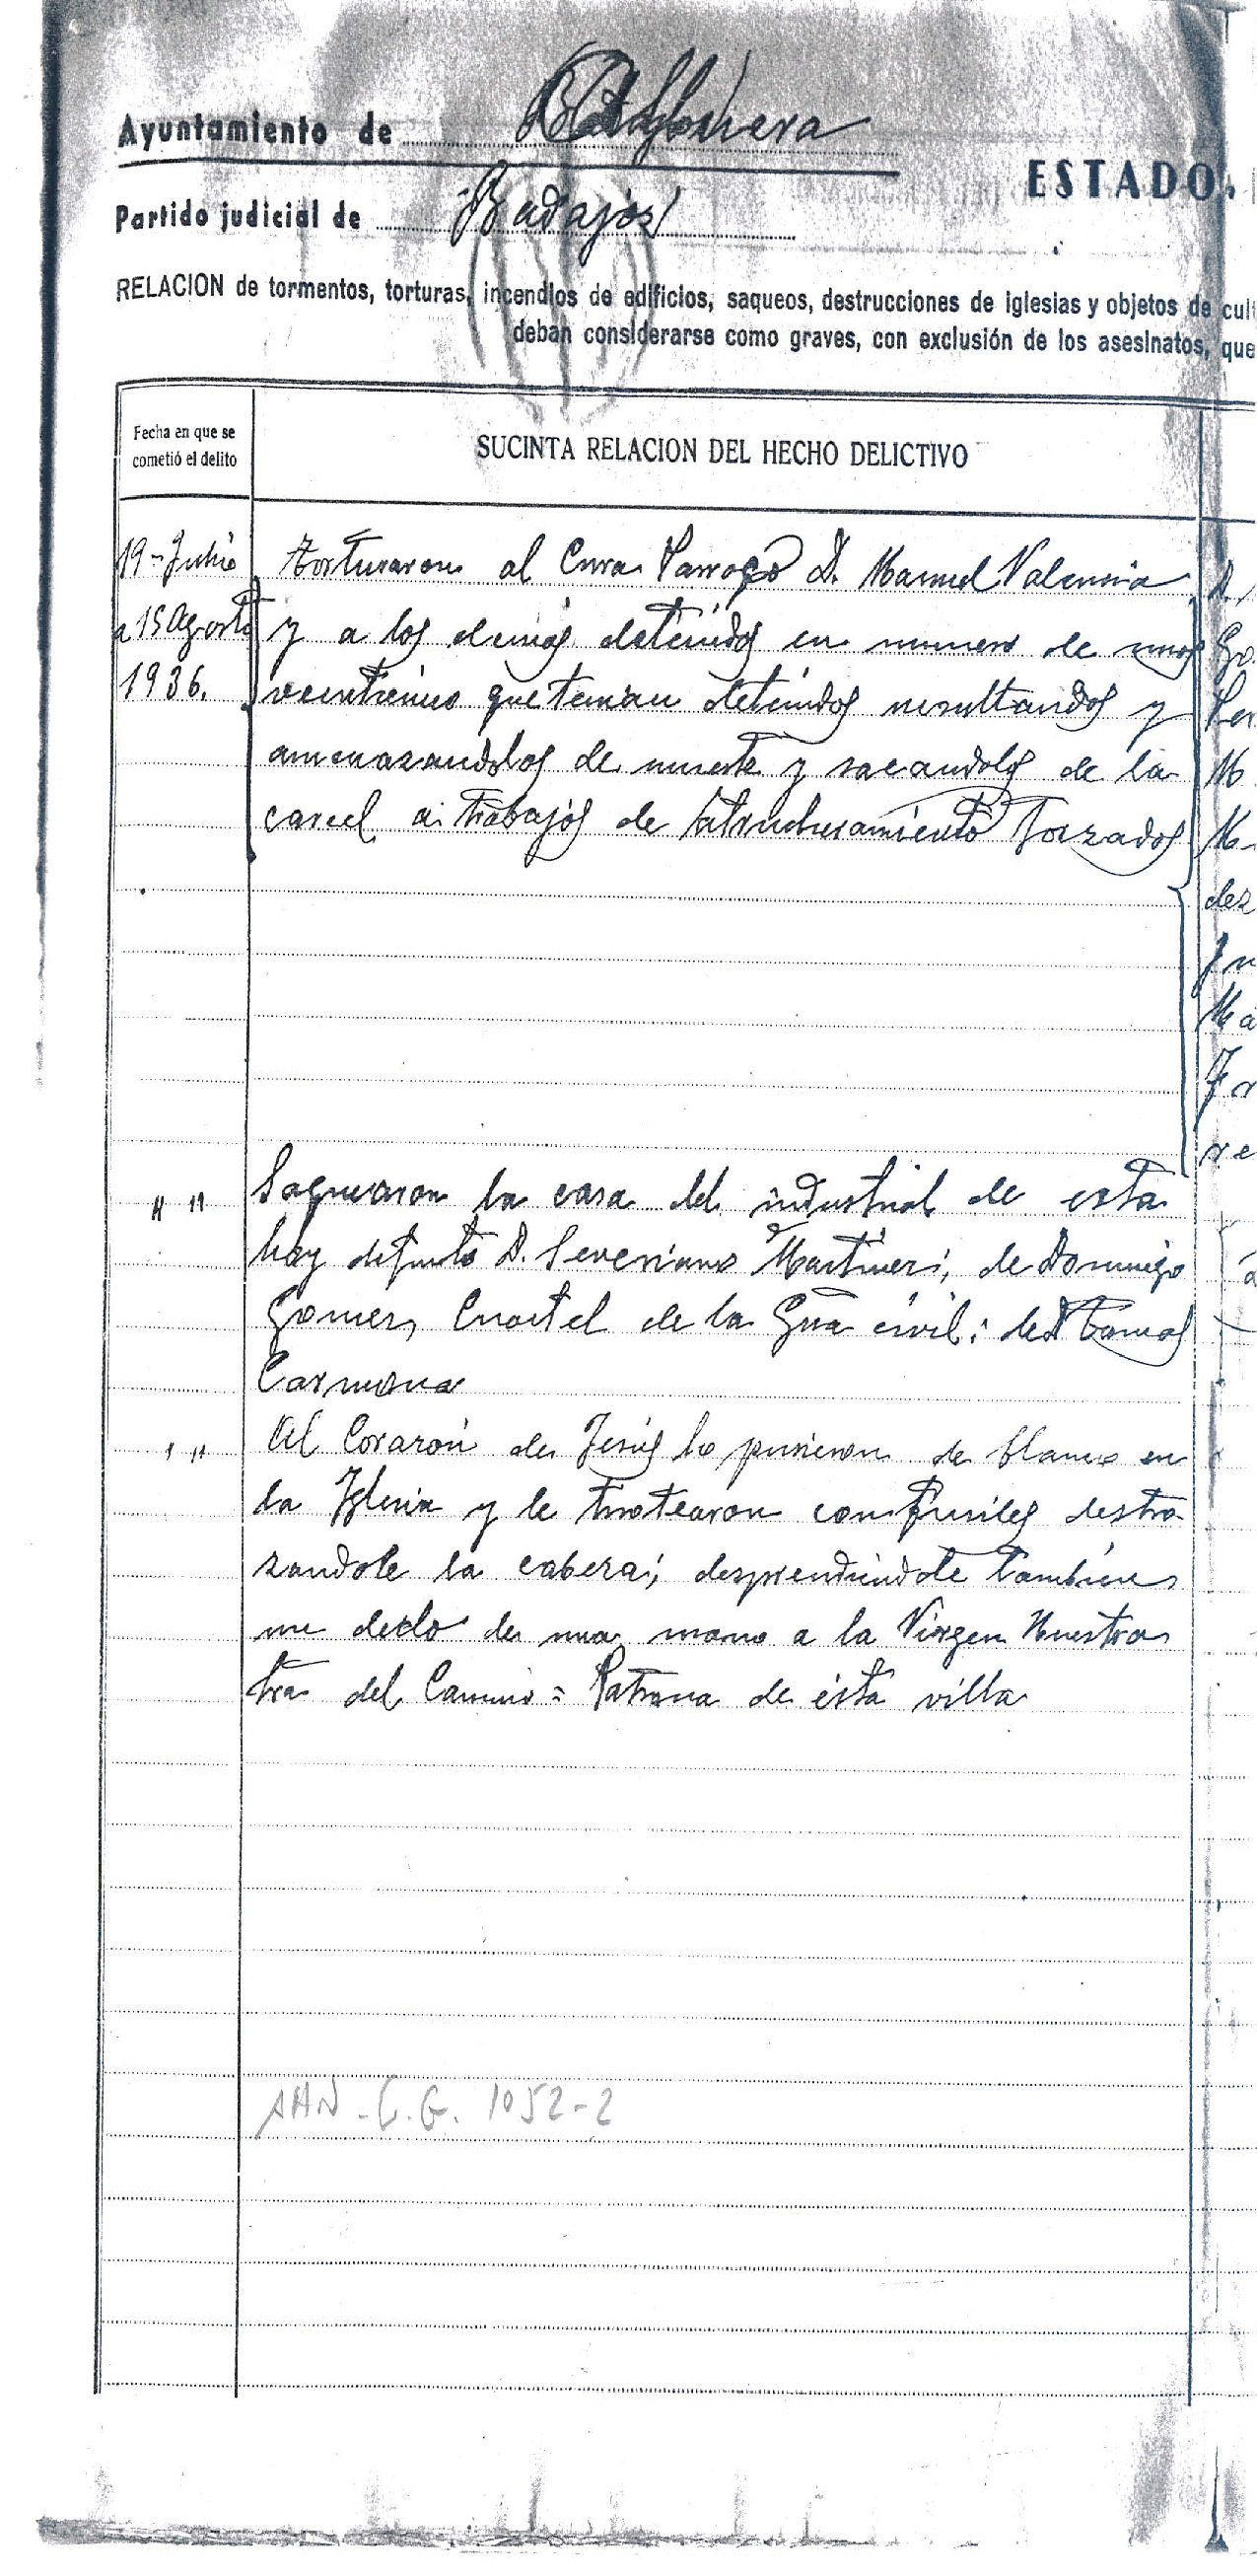 Ayuntamiento de Albuera
ESTADO
Partido judicial de Badajoz
RELACION de tormentos, torturas, incendios de edificios, saqueos, destrucciones de iglesias y objetos de cul
deban considerarse como graves, con exclusión de los asesinatos, que
Fecha en que se
cometió el delito
SUCINTA RELACION DEL HECHO DELICTIVO
19-Julio
a 15 Agosto
1936.
torturaron al Cura Parroco D. Manuel Valencia
y a los demas detenidos en numero de unos
que tenian detenidos y
amenazandolos de muerte y sacandolos de la
carcel a trabajos de forzados
D.
Go
M
M-
dez
Ju
Ma
re
" " Saquearon la casa del industrial de esta
hoy difunto D. Severiano Martinez; de Domingo
Gomez, Cuartel de la Gua civil; de Tomas
Carmona
" " Al Corazon de Jesus lo pusieron de blanco en
la Iglesia y le tirotearon con fusiles destro
zandole la cabeza; desprendiendole tambien
un dedo de una mano a la Virgen Nuestra
del Camino = Patrona de esta villa
AHN - C.G. 1052-2